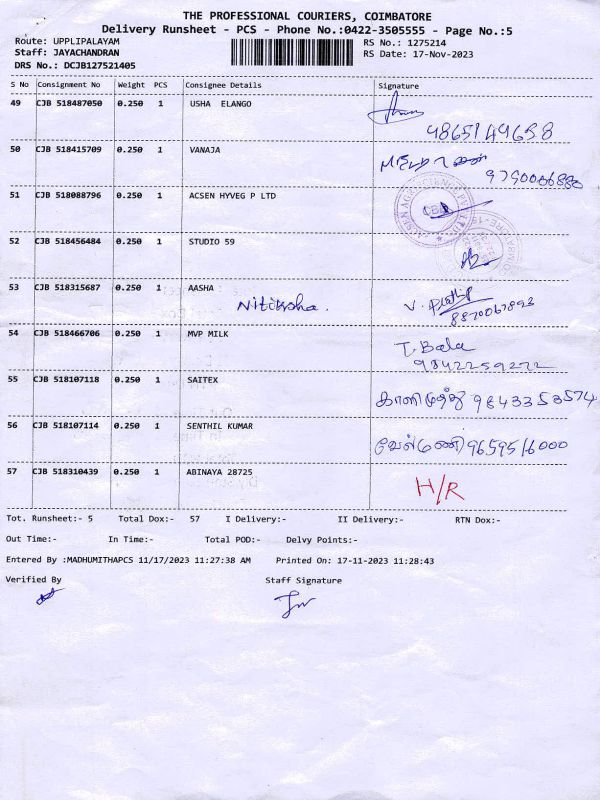 THE PROFESSIONAL COURIERS, COIMBATORE
Delivery Runsheet - PCS - Phone No.:0422-3505555 - Page No.:5
Route: UPPLIPALAYAM
RS No.: 1275214
Staff: JAYACHANDRAN
RS Date: 17-Nov-2023
DRS No.: DCJB127521405
S No Consignment No Weight PCS Consignee Details Signature
49 CJB 518487050 0.250 1 USHA ELANGO
50 CJB 518415709 0.250 1 VANAJA
51 CJB 518088796 0.250 1 ACSEN HYVEG P LTD
52 CJB 518456484 0.250 1 STUDIO 59
53 CJB 518315687 0.250 1 AASHA
Nitiksha.
8870067893
54 CJB 518466706 0.250 1 MVP MILK T. Bala
9842259272
55 CJB 518107118 0.250 1 SAITEX காளிமுத்து 9843353574
56 CJB 518107114 0.250 1 SENTHIL KUMAR வேல்மணி 9659516000
57 CJB 518310439 0.250 1 ABINAYA 28725 H/R
Tot. Runsheet:- 5 Total Dox:- 57 I Delivery:- II Delivery:- RTN Dox:-
Out Time:- In Time:- Total POD:- Delvy Points:-
Entered By :MADHUMITHAPCS 11/17/2023 11:27:38 AM Printed On: 17-11-2023 11:28:43
Verified By Staff Signature